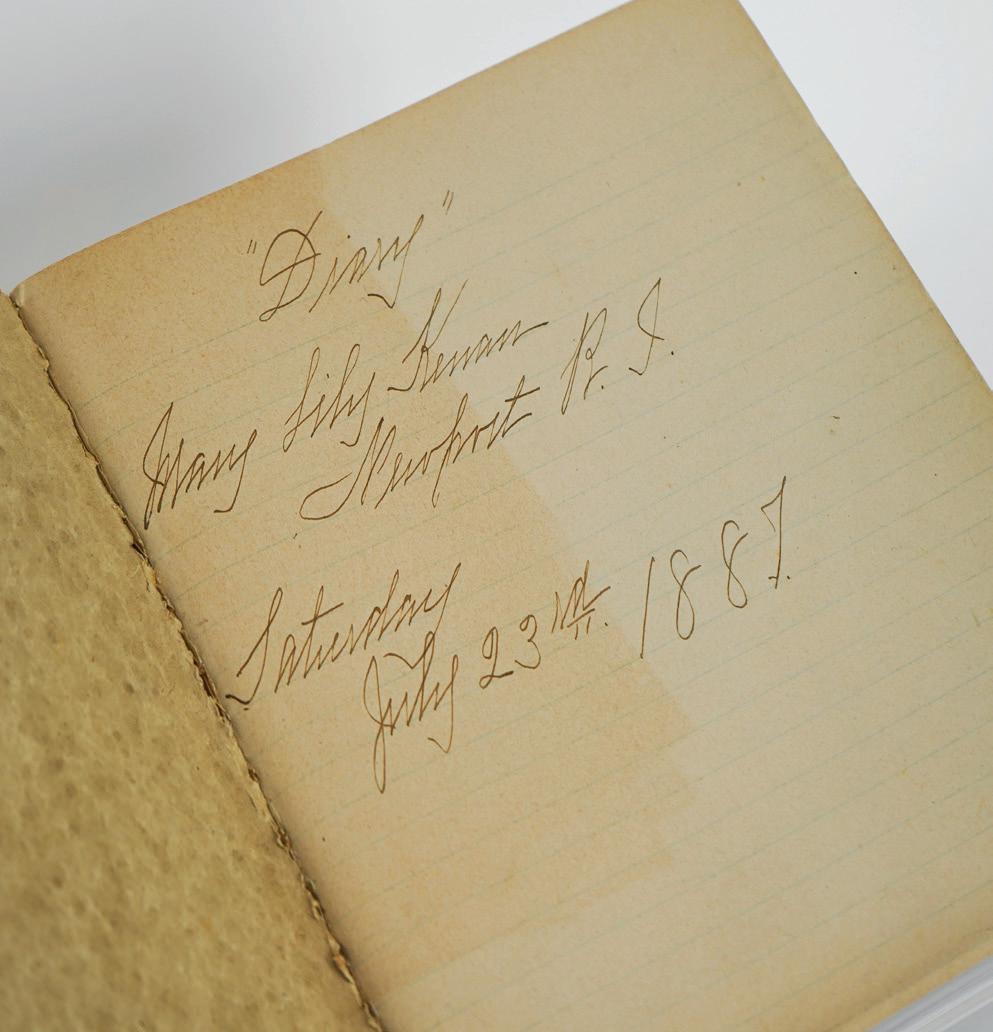 "Diary"
Mary Lily Kenan
Newport R. I.
Saturday
July 23rd. 1887.